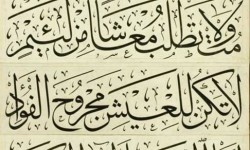 مت ولا تطلب معاشا من لئيم
لا تكن للعيش مجروح الفؤاد